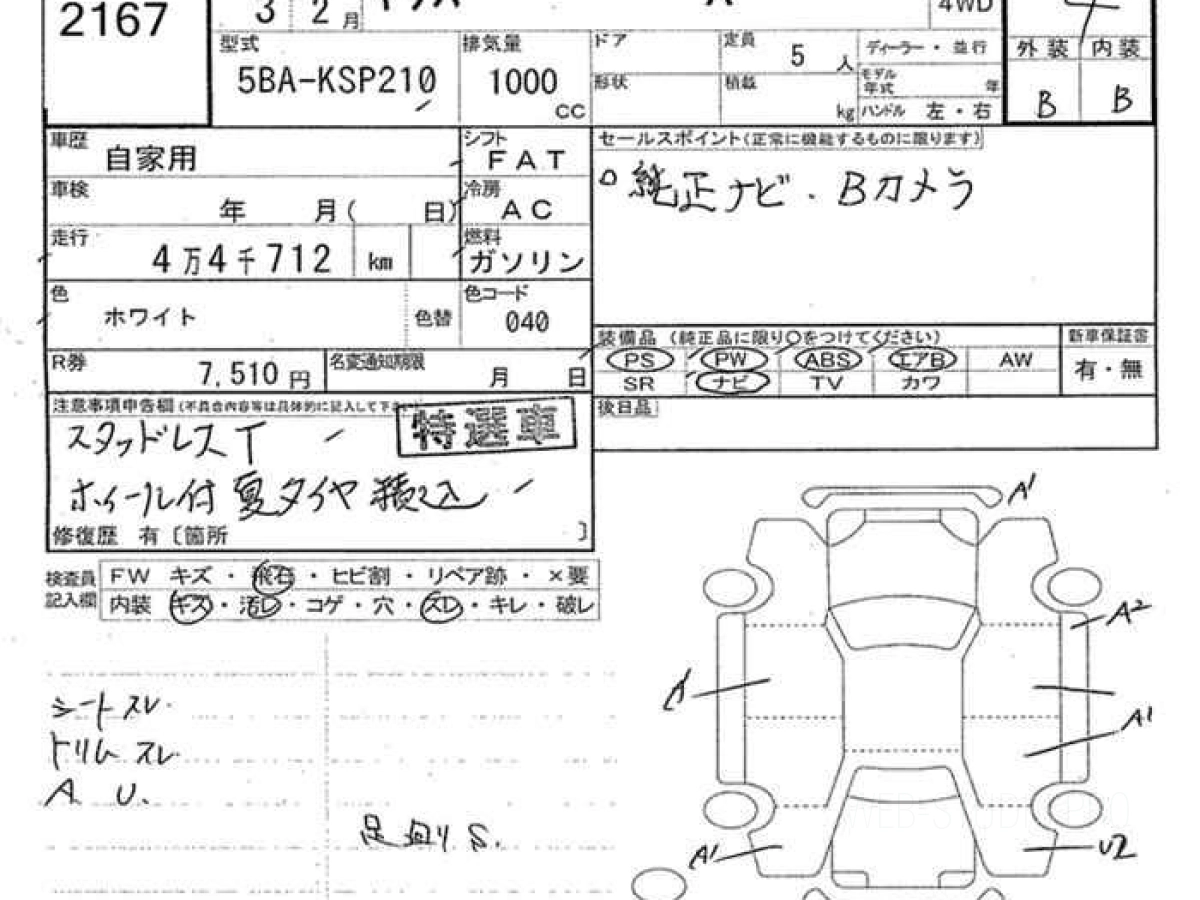 2167
3 2月
4WD
型式
5BA-KSP210
排気量
1000
CC
ドア
形状
定員
5人
積載
kg
ディーラー・並行
モデル年式 年
ハンドル 左・右
外装 内装
B B
車歴
自家用
シフト
FAT
車検
年 月( 日)
冷房
AC
走行
4万4千712 km
燃料
ガソリン
色
ホワイト
色替
色コード
040
R券
7,510円
名変通知期限
月 日
セールスポイント(正常に機能するものに限ります)
純正ナビ・Bカメラ
装備品 (純正品に限り〇をつけてください)
PS PW ABS エアB AW
SR ナビ TV カワ
新車保証書
有・無
後日品
注意事項申告欄(不具合内容等は具体的に記入して下さい
特選車
スタッドレスT
ホイール付 夏タイヤ 積込
修復歴 有〔箇所 〕
検査員記入欄
FW キズ・飛石・ヒビ割・リペア跡・×要
内装 キズ・汚レ・コゲ・穴・スレ・キレ・破レ
シートスレ.
トリムスレ
A U.
足廻りS.
A1
A2
A
A1
A1
U2